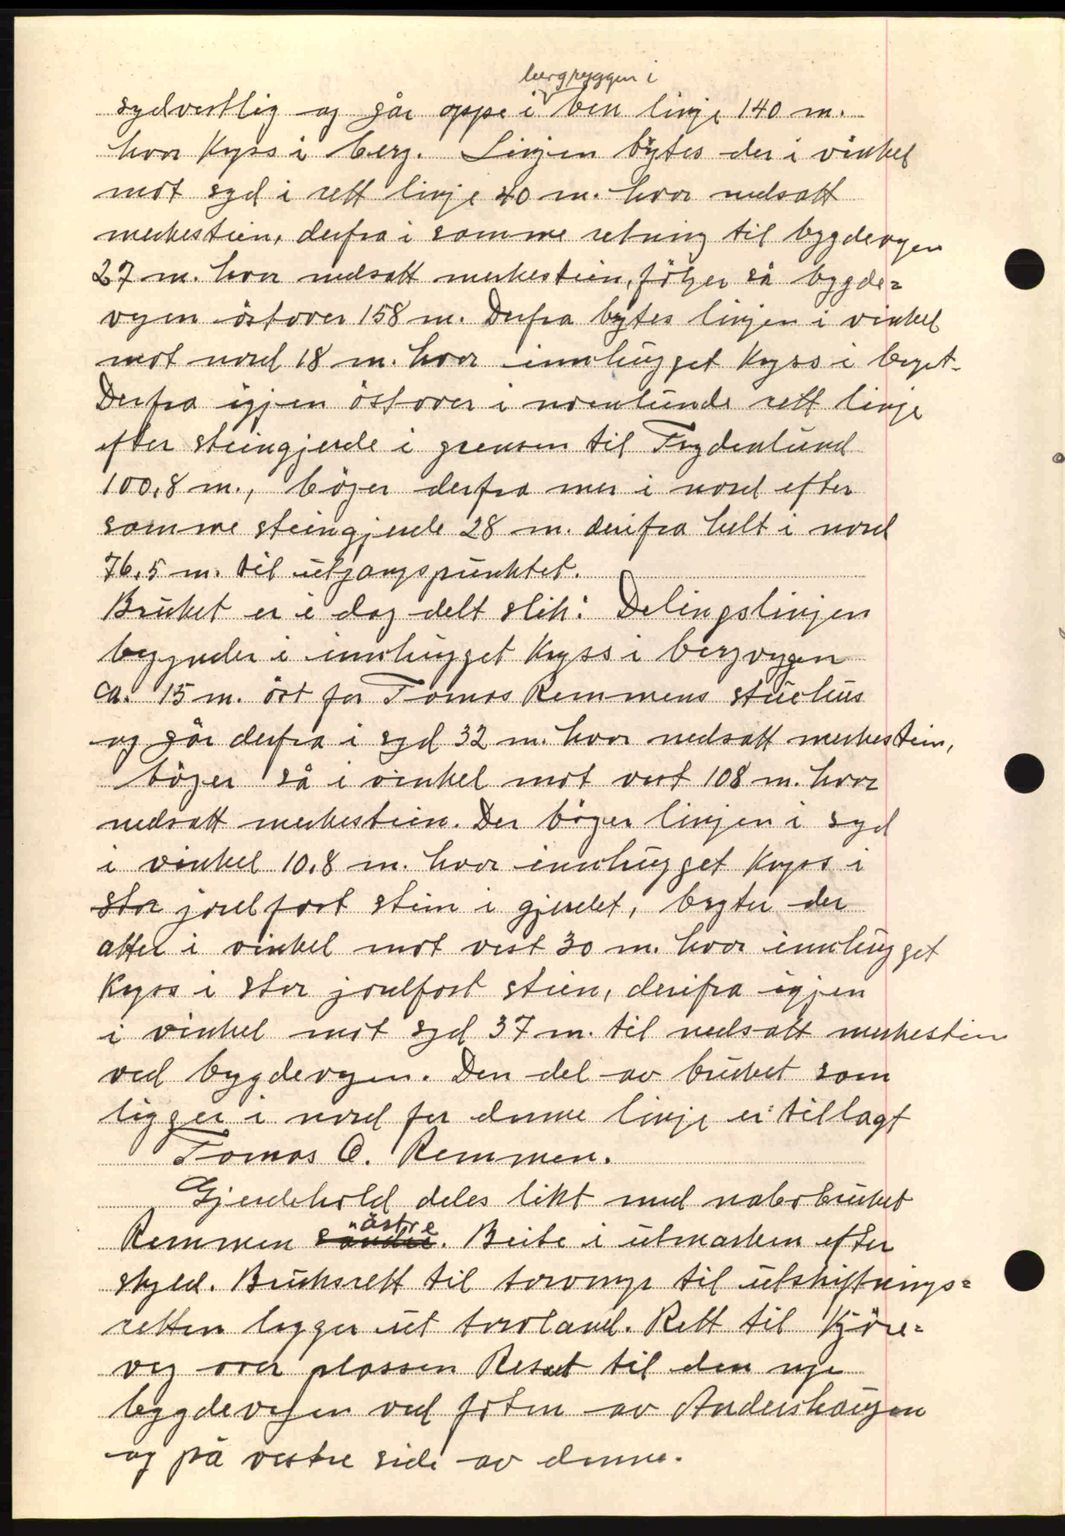 bergryggen i
sydvestlig og går oppe i ben linje 140 m.
hvor kyss i berg. Linjen bytes der i vinkel
mot syd i rett linje 40 m. hvor nedsatt
merkestein, derfra i samme retning til bygdevegen
27 m. hvor nedsatt merkestein, följer så bygde=
vegen östover 158 m. Derfra bytes linjen i vinkel
mot nord 18 m. hvor innhugget kryss i berget.
Derfra igjen östover i noenlunde rett linje
efter steingjerde i grensen til Frydenlund
100,8 m., böyer derfra mer i nord efter
samme steingjerde 28 m. derifra helt i nord
76,5 m. til utgangspunktet.
Bruket er i dag delt slik: Delingslinjen
begynder i innhugget kryss i bergveggen
ca. 15 m. öst for Tomas Remmens stuehus
og går derfra i syd 32 m. hvor nedsatt merkestein,
böyer så i vinkel mot vest 108 m. hvor
nedsatt merkestein. Der böyer linjen i syd
i vinkel 10,8 m. hvor innhugget kryss i
stor jordfast stein i gjerdet, bryter der
atter i vinkel mot vest 30 m. hvor innhugget
kryss i stor jordfast stein, derifra igjen
i vinkel mot syd 37 m. til nedsatt merkestein
ved bygdevegen. Den del av bruket som
ligger i nord for denne linje er tillagt
Tomas O. Remmen.
Gjerdehold deles likt med nabobruket
"östre
Remmen söndre. Beite i utmarken efter
skyld. Bruksrett til torvmyr til utskiftnings=
retten legger ut torvland. Rett til kjöre=
veg over plassen Reset til den nye
bygdevegen ved foten av Andershaugen
og på vestre side av denne.